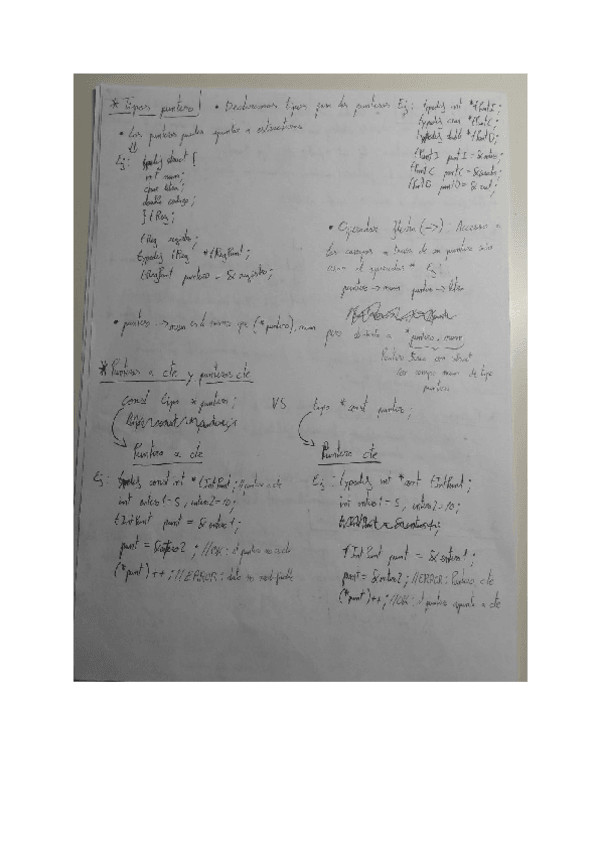 * Tipos puntero! • Declaramos tipos para los punteros Ej: typedef int *tPuntI;
typedef char *tPuntC;
typedef double *tPuntD;
tPuntI puntI = &entero;
tPuntC puntC =
tPuntD puntD =
• Los punteros pueden apuntar a estructuras
Ej: typedef struct {
int num;
char letra;
double codigo;
} tReg;
tReg registro;
typedef tReg *tRegPunt;
tRegPunt puntero = &registro;
• Operador flecha (->): Acceso a
los campos a traves de un puntero sin
usar el operador * Ej:
puntero -> num puntero -> letra
• puntero -> num es lo mismo que (*puntero).num pero distinto a *puntero.num
Puntero sería con struct
con campo num de tipo
puntero
* Punteros a cte y punteros cte
const tipo *puntero; VS tipo *const puntero;
Puntero a cte
Puntero cte
Ej: typedef const int *tIntPunt; // puntero a cte
int entero1=5, entero2=10;
tIntPunt punt = &entero1;
punt = &entero2; //OK: el puntero no es cte
(*punt)++; //ERROR: dato no modificable
Ej: typedef int *const tIntPunt;
int entero1=5, entero2=10;
tIntPunt punt = &entero1;
punt = &entero2; //ERROR: Puntero cte
(*punt)++; //OK: el puntero apunta a cte